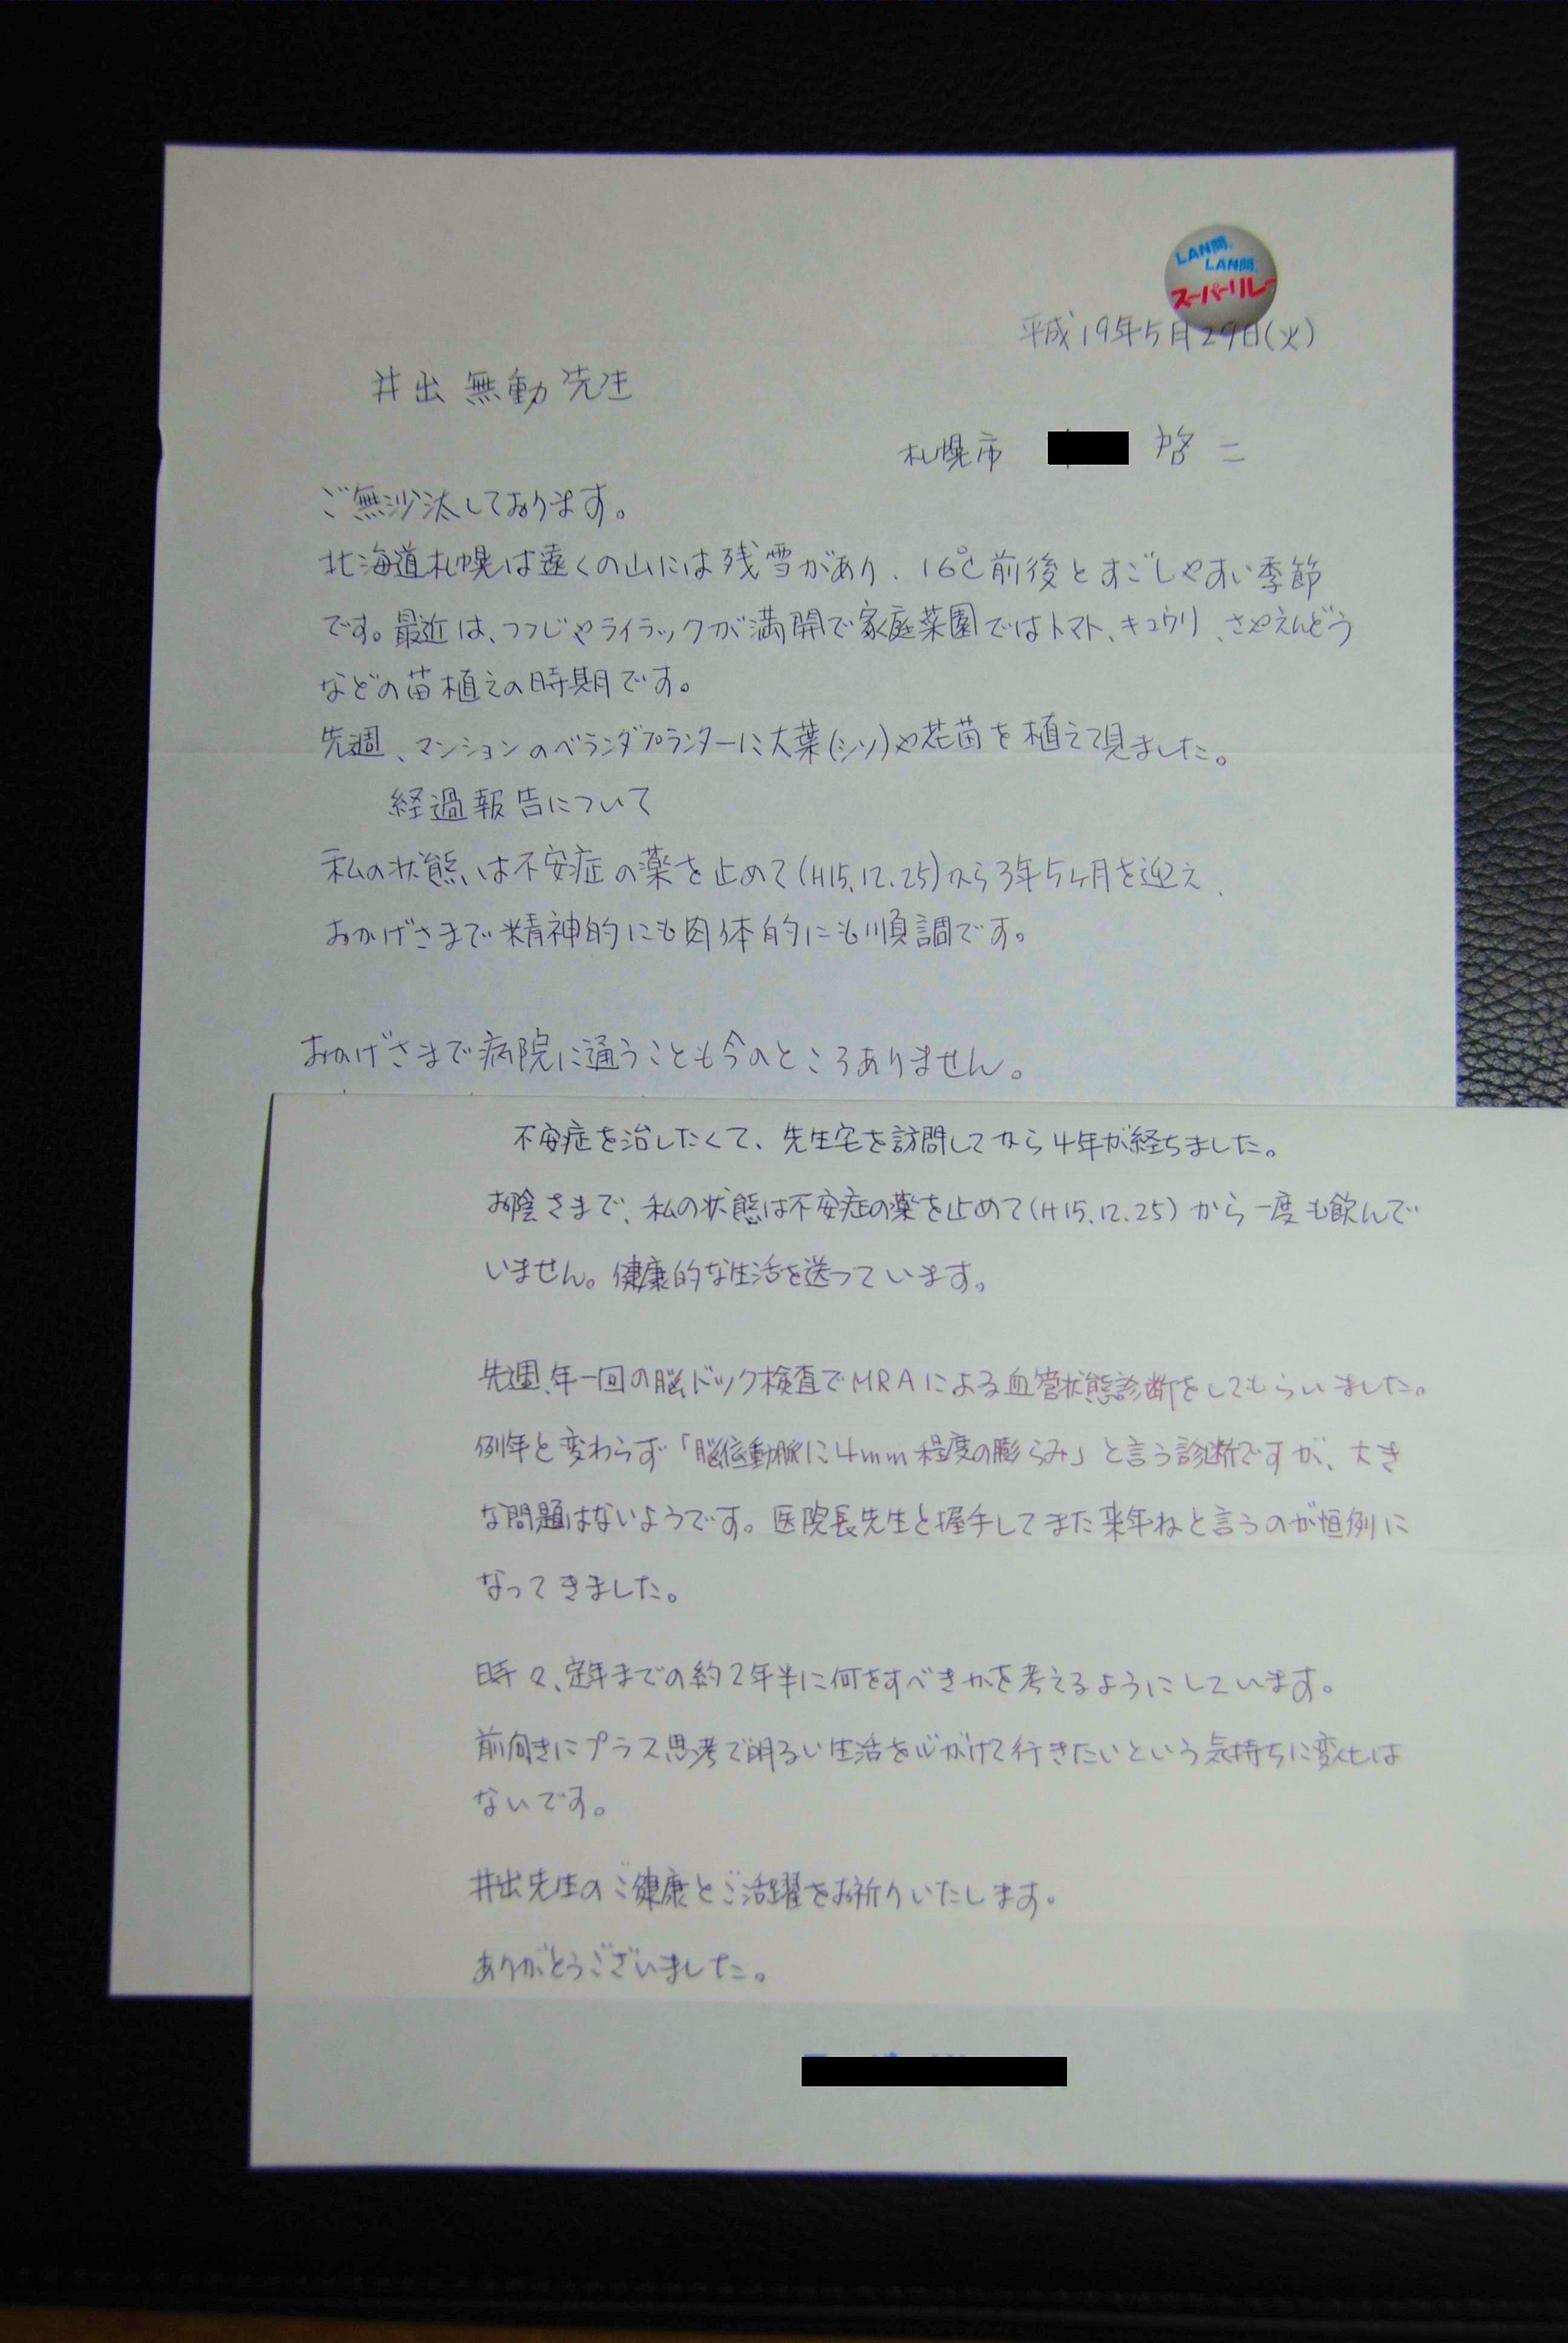 LAN間、
LAN間、
スーパーリレー
平成19年5月29日(火)
井出 無動 先生
札幌市 啓二
ご無沙汰しております。
北海道札幌は遠くの山には残雪があり、16℃前後とすごしやすい季節
です。最近は、つつじやライラックが満開で家庭菜園ではトマト、キュウリ、さやえんどう
などの苗植えの時期です。
先週、マンションのベランダプランターに大葉(シソ)や花苗を植えて見ました。
経過報告について
私の状態は不安症の薬を止めて(H15.12.25)から3年5ヶ月を迎え、
おかげさまで精神的にも肉体的にも順調です。
おかげさまで病院に通うことも今のところありません。
不安症を治したくて、先生宅を訪問してから4年が経ちました。
お陰さまで、私の状態は不安症の薬を止めて(H15.12.25)から一度も飲んで
いません。健康的な生活を送っています。
先週、年一回の脳ドック検査でMRAによる血管状態診断をしてもらいました。
例年と変わらず「脳底動脈に4mm程度の膨らみ」と言う診断ですが、大き
な問題はないようです。医院長先生と握手してまた来年ねと言うのが恒例に
なってきました。
時々、定年までの約2年半に何をすべきかを考えるようにしています。
前向きにプラス思考で明るい生活を心がけて行きたいという気持ちに変化は
ないです。
井出先生のご健康とご活躍をお祈りいたします。
ありがとうございました。